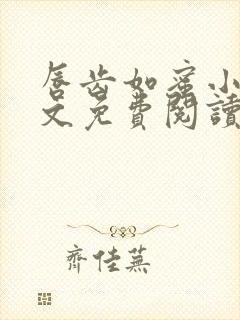 唇齿如蜜小
文免費閱讀
齊佳蕪